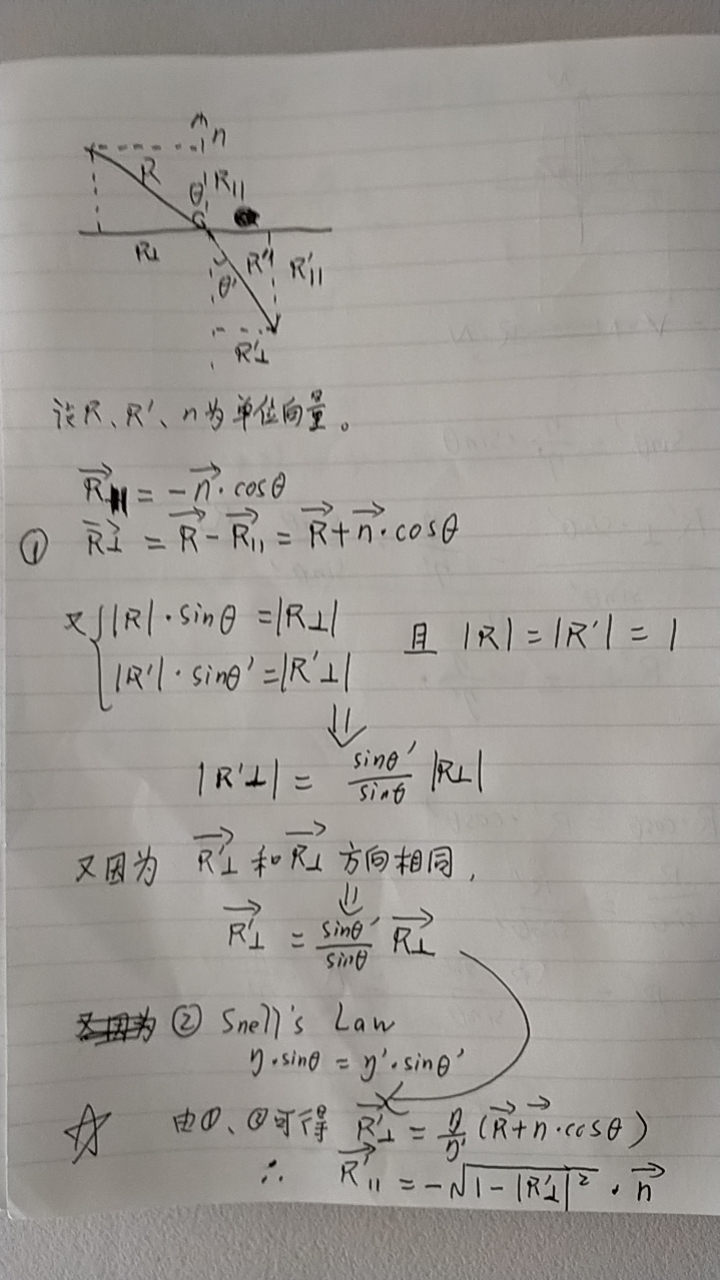 n
R θ R||
R⊥ R' R'||
θ'
R'⊥
设R、R'、n为单位向量。
R|| = -n·cosθ
① R⊥ = R - R|| = R + n·cosθ
又{|R|·sinθ = |R⊥| 且 |R| = |R'| = 1
|R'|·sinθ' = |R'⊥|
⇓
|R'⊥| = sinθ'/sinθ |R⊥|
又因为 R'⊥ 和 R⊥ 方向相同,
⇓
R'⊥ = sinθ'/sinθ R⊥
② Snell's Law
η·sinθ = η'·sinθ'
☆ 由①、②可得 R'⊥ = η/η' (R + n·cosθ)
∴ R'|| = -√(1 - |R'⊥|²) · n